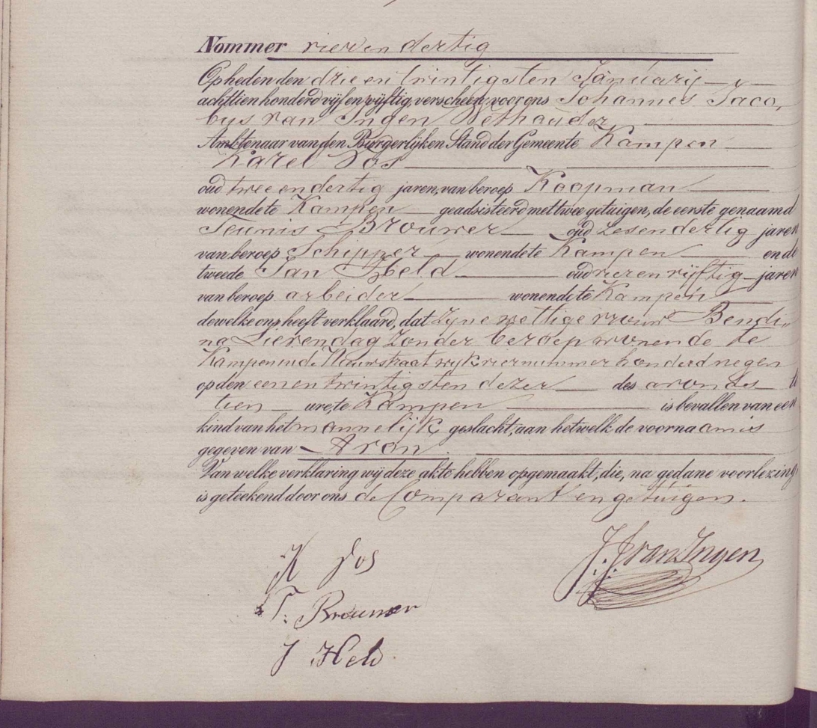 Nommer vier en dertig
Op heden den drie en twintigsten Januarij
achttien honderd vijf en vijftig, verscheen voor ons Johannes Jaco,
bus van Ingen Wethouder
Ambtenaar van den Burgerlijken Stand der Gemeente Kampen
Karel Vos
oud twee en dertig jaren, van beroep Koopman
wonende te Kampen geadsisteerd met twee getuigen, de eerste genaamd
Teunis Brouwer oud zes en dertig jaren
van beroep Schipper wonende te Kampen en de
tweede Jan Held oud vier en vijftig jaren
van beroep arbeider wonende te Kampen
dewelke ons heeft verklaard, dat zijne wettige vrouw Bendi,,
na Lierendag zonder beroep wonende te
Kampen in de Nieuwstraat wijk vier nummer honderd negen
op den een en twintigsten dezer des avonds te
tien ure, te Kampen is bevallen van een
kind van het mannelijk geslacht, aan hetwelk de voornaamis
gegeven van Aron
Van welke verklaring wij deze akte hebben opgemaakt, die, na gedane voorlezing
is geteekend door ons de Comparant en getuigen.
K Vos
J. J. van Ingen
T. Brouwer
J Held.